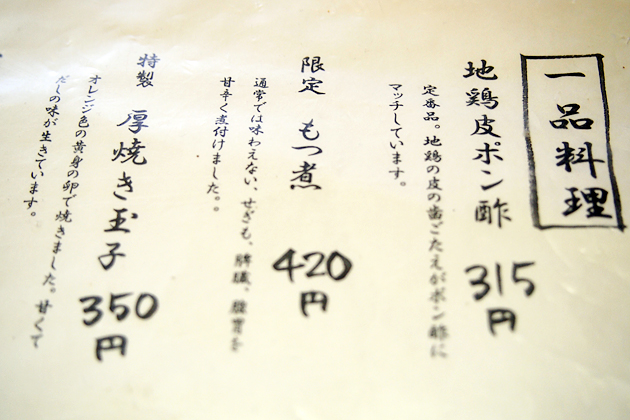 一品料理
地鶏皮ポン酢 315円
定番品。地鶏の皮の歯ごたえがポン酢に
マッチしています。
限定 もつ煮 420円
通常では味わえない、せぎも、脾臓、腺胃を
甘辛く煮付けました。
特製 厚焼き玉子 350円
オレンジ色の黄身の卵で焼きました。甘くて
だしの味が生きています。